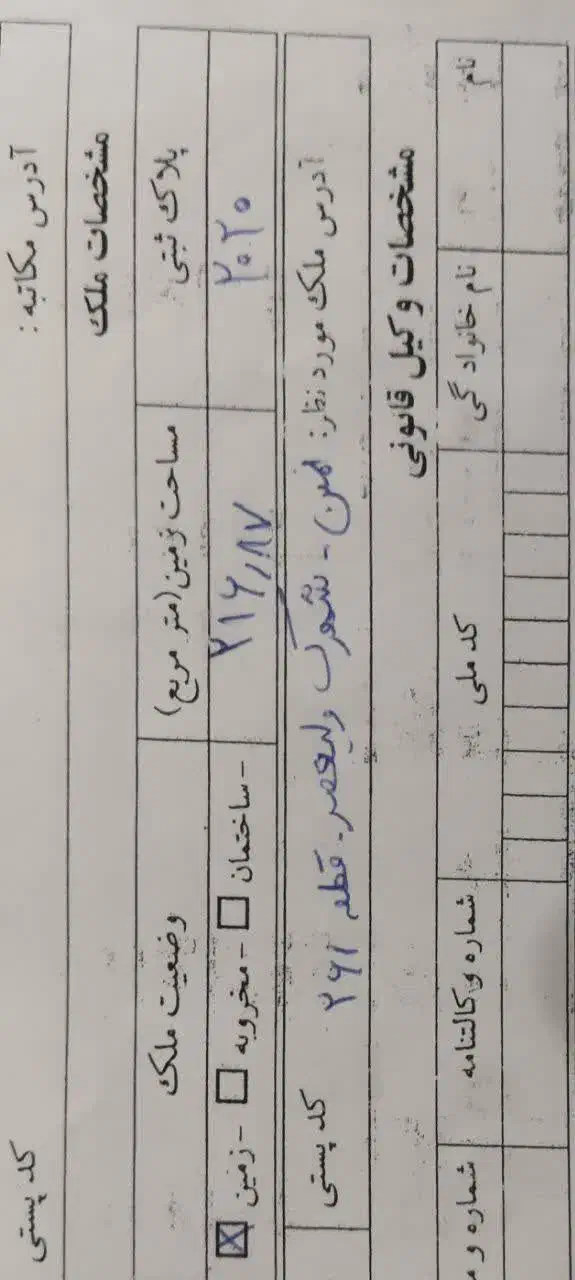 آدرس مکاتبه : کد پستی
مشخصات ملک
پلاک ثبتی مساحت زمین(متر مربع) وضعیت ملک
۲۰۲۰ ۲۱۶٫۸۷ -ساختمان -مخروبه -زمین
آدرس ملک مورد نظر: - شهرک ولیعصر - قطعه ۲۶۱ کد پستی
مشخصات وکیل قانونی
نام نام خانوادگی کد ملی شماره وکالتنامه شماره و